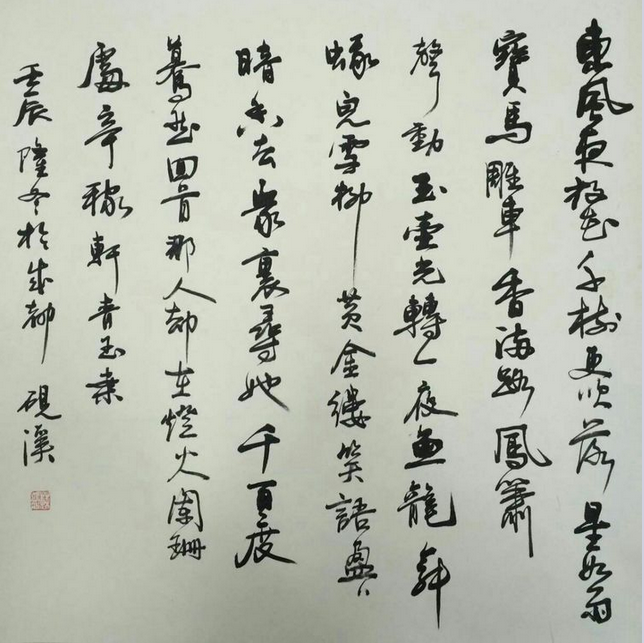 東風夜放花千樹更吹落星如雨
寶馬雕車香滿路鳳簫
聲動玉壺光轉一夜魚龍舞
蛾兒雪柳黄金縷笑語盈〻
暗香去衆裏尋她千百度
驀然回首那人却在燈火闌珊
處辛稼軒青玉案
壬辰隆冬於成都 硯溪